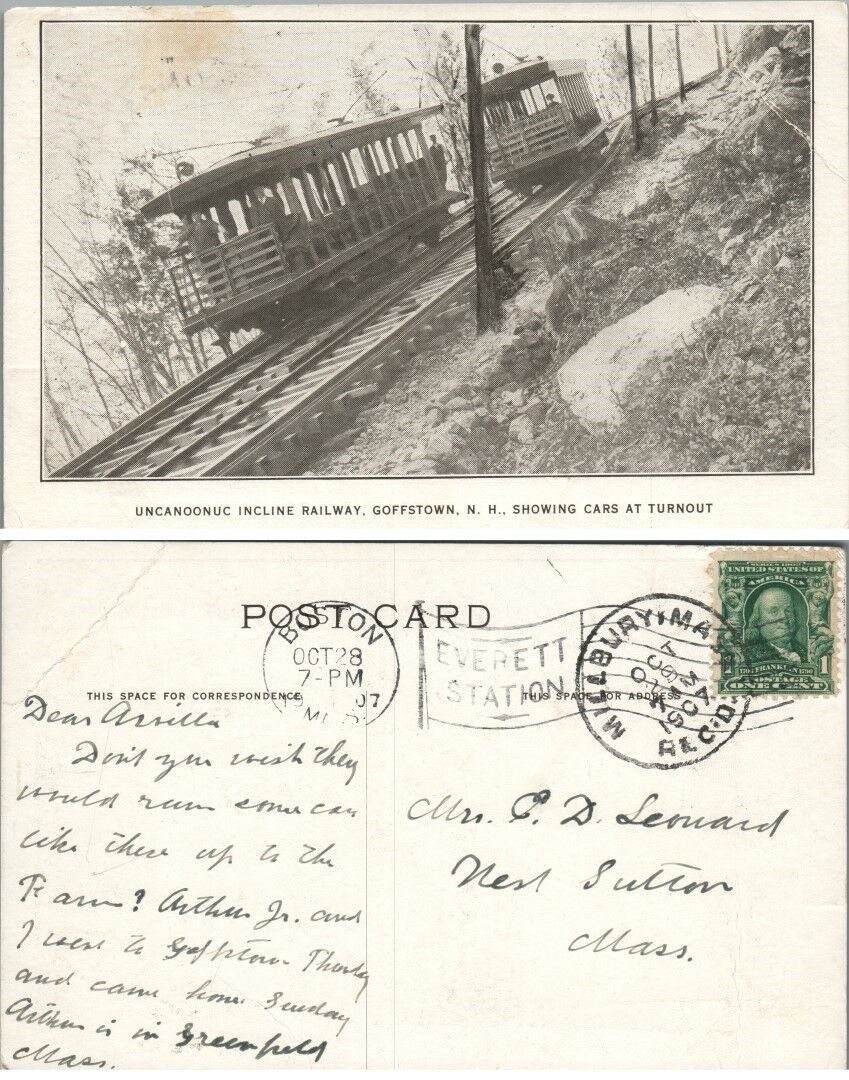 UNCANOONUC INCLINE RAILWAY, GOFFSTOWN, N. H., SHOWING CARS AT TURNOUT
POST CARD
BOSTON
OCT 28
7-PM
1907
MASS.
EVERETT
STATION
MILLBURY, MA
OCT
1907
REC'D.
SERIES 1902
UNITED STATES OF
AMERICA
1 FRANKLIN 1
POSTAGE
ONE CENT
THIS SPACE FOR CORRESPONDENCE
THIS SPACE FOR ADDRESS
Dear Arvilla
Don't you wish they
would run some cars
like these up to the
Farm? Arthur Jr. and
I went to Goffstown Thursday
and came home Sunday
Arthur is in Greenfield
Mass.
Mrs. C. D. Leonard
West Sutton
Mass.